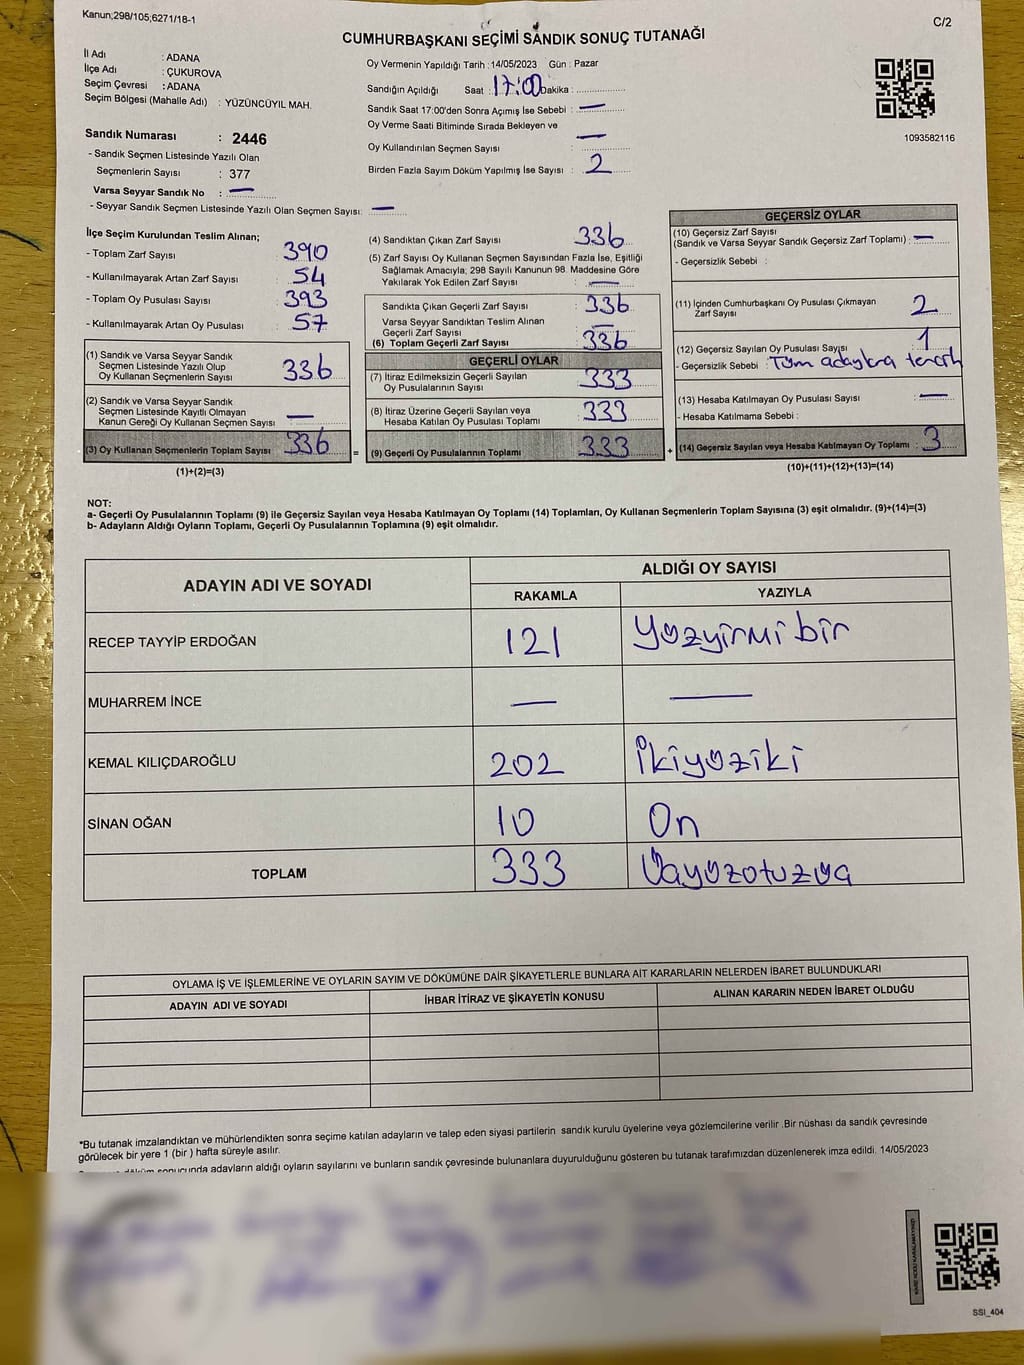 Kanun;298/105;6271/18-1
C/2
CUMHURBAŞKANI SEÇİMİ SANDIK SONUÇ TUTANAĞI
İl Adı : ADANA
İlçe Adı : ÇUKUROVA
Seçim Çevresi : ADANA
Seçim Bölgesi (Mahalle Adı) : YÜZÜNCÜYIL MAH.
Oy Vermenin Yapıldığı Tarih :14/05/2023 Gün : Pazar
Sandığın Açıldığı Saat : 17:00 Dakika :
Sandık Saat 17:00'den Sonra Açımış İse Sebebi : —
Oy Verme Saati Bitiminde Sırada Bekleyen ve
Oy Kullandırılan Seçmen Sayısı : —
Birden Fazla Sayım Döküm Yapılmış İse Sayısı : 2
1093582116
Sandık Numarası : 2446
- Sandık Seçmen Listesinde Yazılı Olan
Seçmenlerin Sayısı : 377
Varsa Seyyar Sandık No : —
- Seyyar Sandık Seçmen Listesinde Yazılı Olan Seçmen Sayısı: —
İlçe Seçim Kurulundan Teslim Alınan;
- Toplam Zarf Sayısı : 390
- Kullanılmayarak Artan Zarf Sayısı : 54
- Toplam Oy Pusulası Sayısı : 393
- Kullanılmayarak Artan Oy Pusulası : 57
(1) Sandık ve Varsa Seyyar Sandık
Seçmen Listesinde Yazılı Olup
Oy Kullanan Seçmenlerin Sayısı : 336
(2) Sandık ve Varsa Seyyar Sandık
Seçmen Listesinde Kayıtlı Olmayan
Kanun Gereği Oy Kullanan Seçmen Sayısı : —
(3) Oy Kullanan Seçmenlerin Toplam Sayısı : 336
(1)+(2)=(3)
=
(4) Sandıktan Çıkan Zarf Sayısı : 336
(5) Zarf Sayısı Oy Kullanan Seçmen Sayısından Fazla İse, Eşitliği
Sağlamak Amacıyla; 298 Sayılı Kanunun 98. Maddesine Göre
Yakılarak Yok Edilen Zarf Sayısı : —
Sandıkta Çıkan Geçerli Zarf Sayısı : 336
Varsa Seyyar Sandıktan Teslim Alınan
Geçerli Zarf Sayısı : —
(6) Toplam Geçerli Zarf Sayısı : 336
GEÇERLİ OYLAR
(7) İtiraz Edilmeksizin Geçerli Sayılan
Oy Pusulalarının Sayısı : 333
(8) İtiraz Üzerine Geçerli Sayılan veya
Hesaba Katılan Oy Pusulası Toplamı : 333
(9) Geçerli Oy Pusulalarının Toplamı : 333
+
GEÇERSİZ OYLAR
(10) Geçersiz Zarf Sayısı
(Sandık ve Varsa Seyyar Sandık Geçersiz Zarf Toplamı) : —
- Geçersizlik Sebebi :
(11) İçinden Cumhurbaşkanı Oy Pusulası Çıkmayan
Zarf Sayısı : 2
(12) Geçersiz Sayılan Oy Pusulası Sayısı : 1
- Geçersizlik Sebebi : Tüm adaylara tercih
(13) Hesaba Katılmayan Oy Pusulası Sayısı : —
- Hesaba Katılmama Sebebi :
(14) Geçersiz Sayılan veya Hesaba Katılmayan Oy Toplamı : 3
(10)+(11)+(12)+(13)=(14)
NOT:
a- Geçerli Oy Pusulalarının Toplamı (9) ile Geçersiz Sayılan veya Hesaba Katılmayan Oy Toplamı (14) Toplamları, Oy Kullanan Seçmenlerin Toplam Sayısına (3) eşit olmalıdır. (9)+(14)=(3)
b- Adayların Aldığı Oyların Toplamı, Geçerli Oy Pusulalarının Toplamına (9) eşit olmalıdır.
ADAYIN ADI VE SOYADI ALDIĞI OY SAYISI
RAKAMLA YAZIYLA
RECEP TAYYİP ERDOĞAN 121 Yüzyirmi bir
MUHARREM İNCE — —
KEMAL KILIÇDAROĞLU 202 İkiyüziki
SİNAN OĞAN 10 On
TOPLAM 333 Üçyüzotuzüç
OYLAMA İŞ VE İŞLEMLERİNE VE OYLARIN SAYIM VE DÖKÜMÜNE DAİR ŞİKAYETLERLE BUNLARA AİT KARARLARIN NELERDEN İBARET BULUNDUKLARI
ADAYIN ADI VE SOYADI İHBAR İTİRAZ VE ŞİKAYETİN KONUSU ALINAN KARARIN NEDEN İBARET OLDUĞU
*Bu tutanak imzalandıktan ve mühürlendikten sonra seçime katılan adayların ve talep eden siyasi partilerin sandık kurulu üyelerine veya gözlemcilerine verilir .Bir nüshası da sandık çevresinde
görülecek bir yere 1 (bir ) hafta süreyle asılır.
döküm sonucunda adayların aldığı oyların sayılarını ve bunların sandık çevresinde bulunanlara duyurulduğunu gösteren bu tutanak tarafımızdan düzenlenerek imza edildi. 14/05/2023
KARE KODU KARALAMAYINIZ!
SSI_404